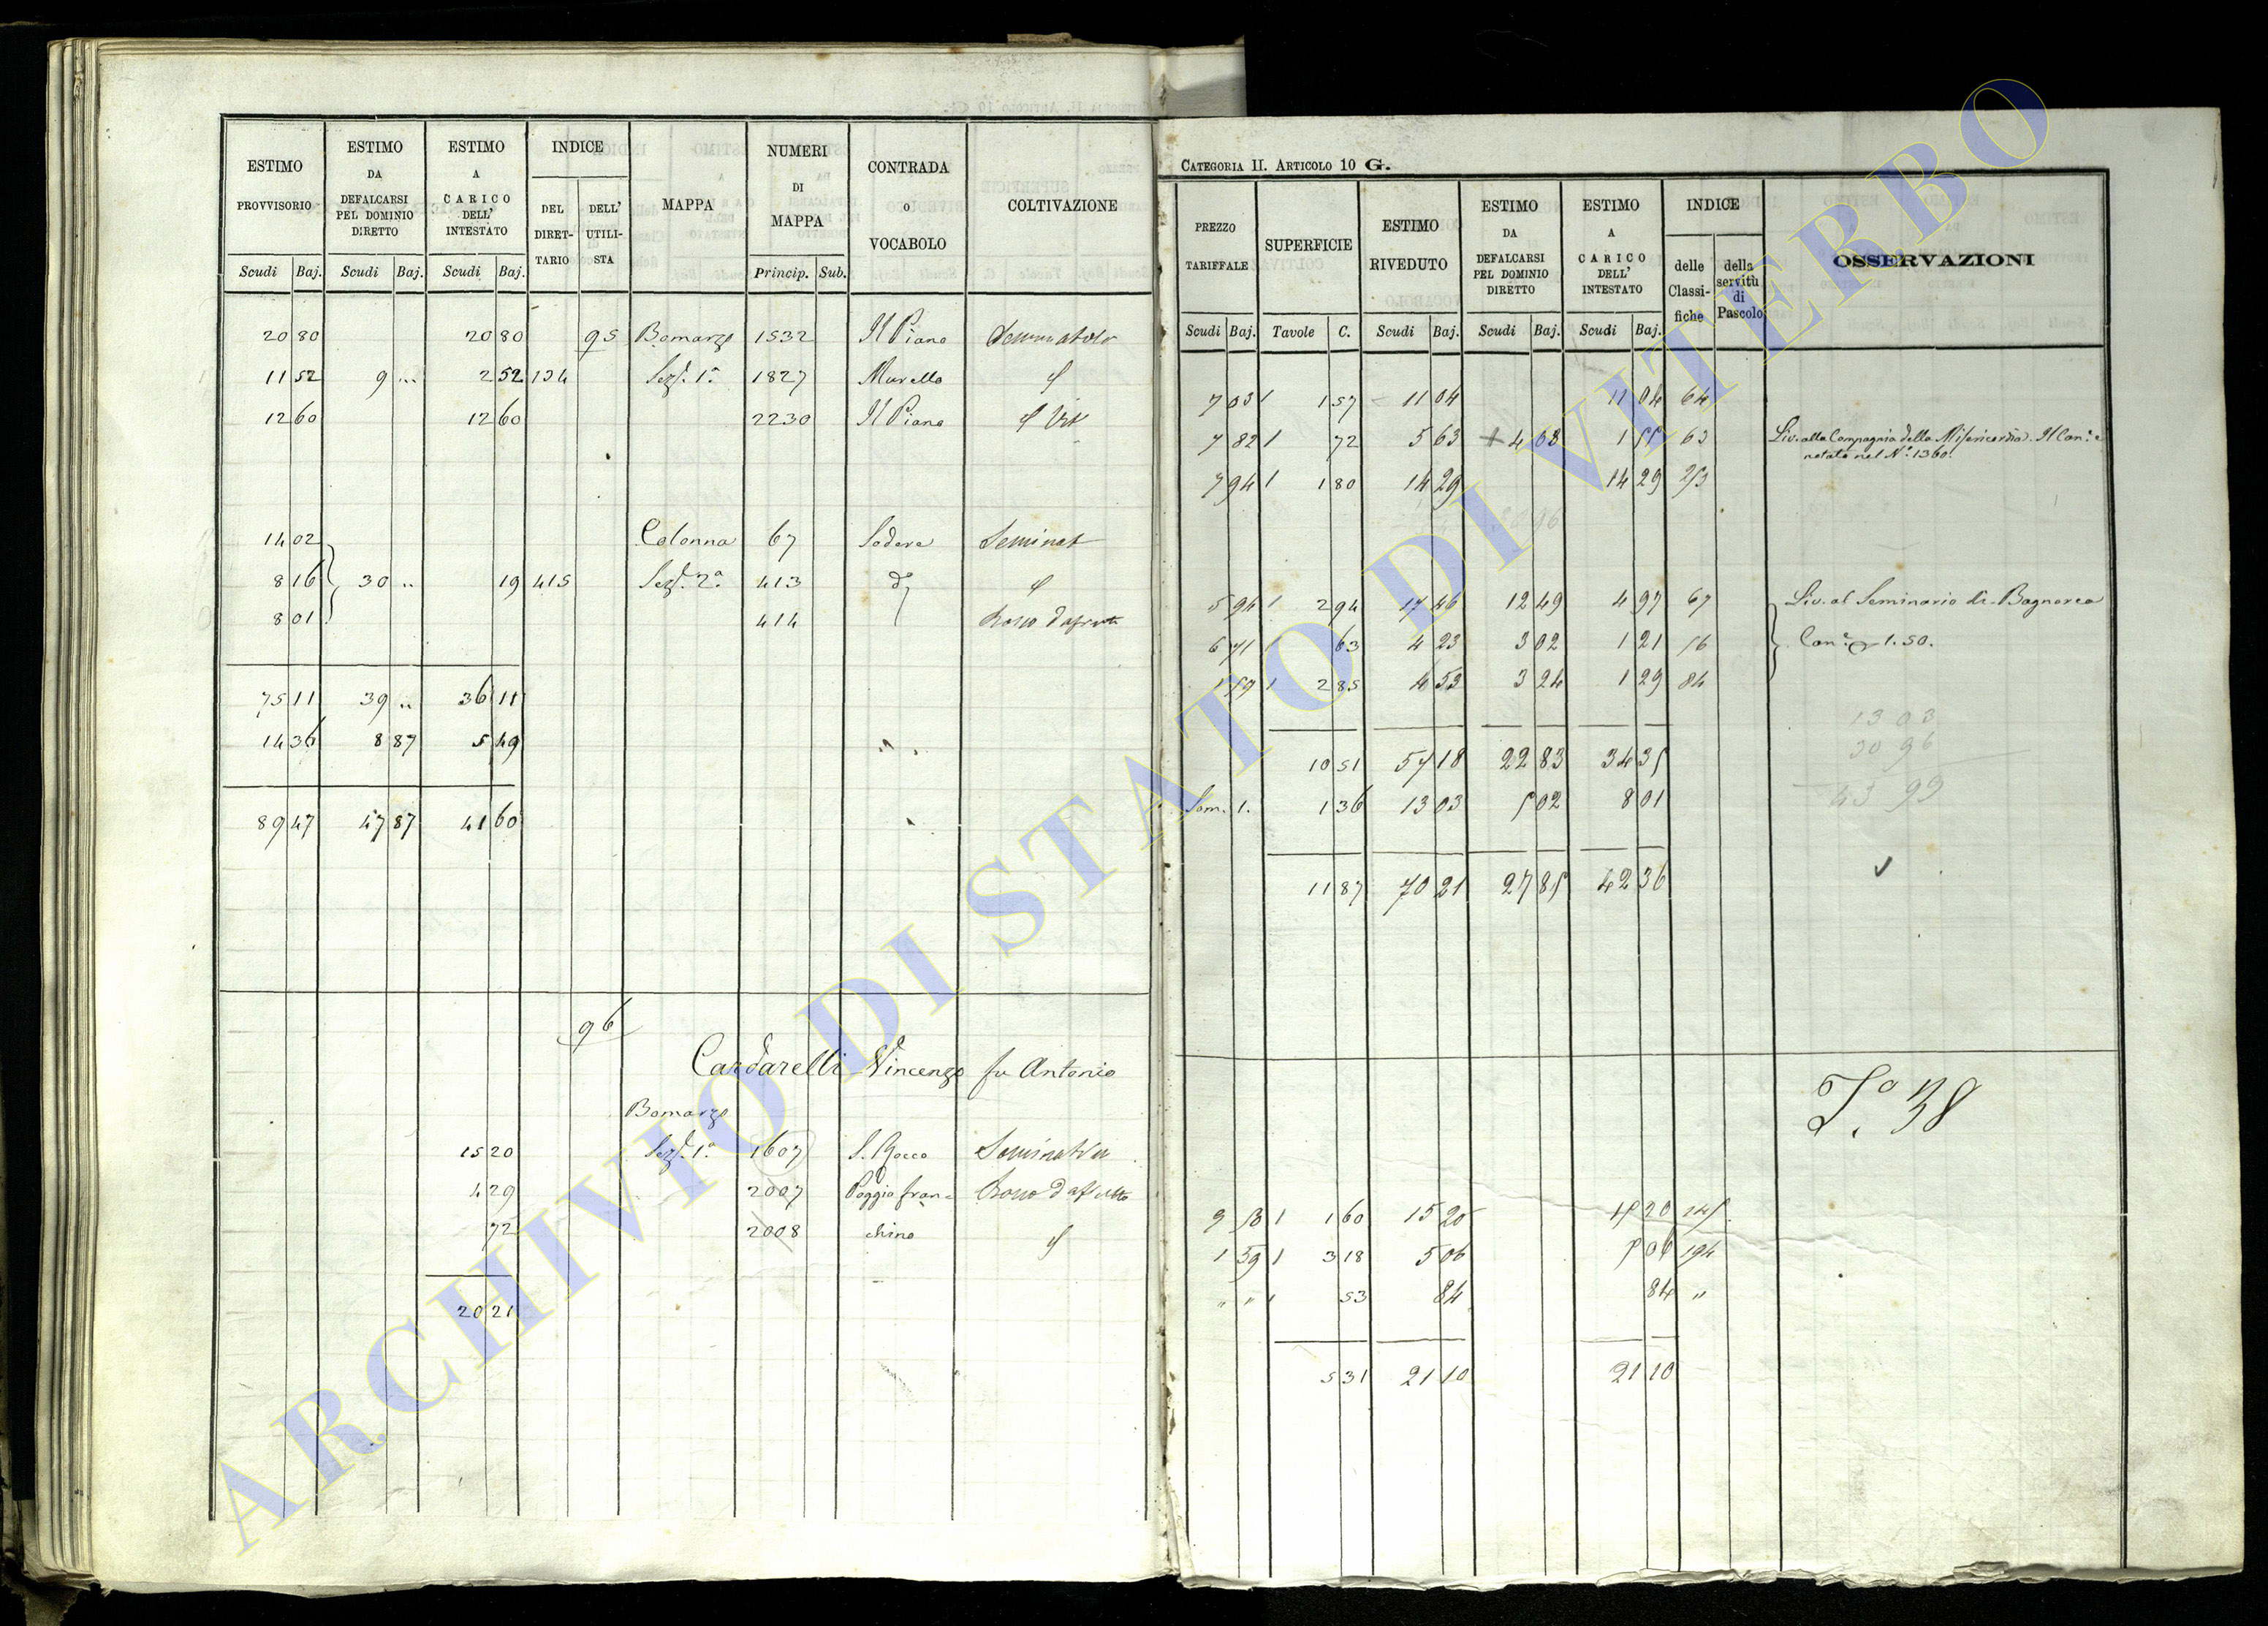 ESTIMO PROVVISORIO
ESTIMO DA DEFALCARSI PEL DOMINIO DIRETTO
ESTIMO A CARICO DELL' INTESTATO
INDICE
DEL DIRET-TARIO
DELL' UTILI-STA
MAPPA
NUMERI DI MAPPA
CONTRADA O VOCABOLO
COLTIVAZIONE
Scudi Baj. Scudi Baj. Scudi Baj. Princip. Sub.
20 80 20 80 95 Bomarzo 1532 Il Piano Seminativo
11 52 9 ... 2 52 134 Sez. 1a 1827 Murello d
12 60 12 60 2230 Il Piano d Vit
14 02 Colonna 67 Sodera Seminat
8 16 30 .. 19 415 Sez. 2a 413 d
8 01 414 Bosco da frutto
75 11 39 .. 36 11
14 36 8 87 5 49
89 47 47 87 41 60
96
Cardarelli Vincenzo fu Antonio
Bomarzo
15 20 Sez. 1a 1607 S. Rocco Seminativo
4 29 2007 Poggio fran= Bosco da frutto
72 2008 chino d
20 21
CATEGORIA II. ARTICOLO 10 G.
PREZZO TARIFFALE
SUPERFICIE
ESTIMO RIVEDUTO
ESTIMO DA DEFALCARSI PEL DOMINIO DIRETTO
ESTIMO A CARICO DELL' INTESTATO
INDICE
delle Classi-fiche
della servitù di Pascolo
OSSERVAZIONI
Scudi Baj. Tavole C. Scudi Baj. Scudi Baj. Scudi Baj.
7 03 1 1 57 11 04 11 04 64
7 82 1 72 5 63 4 08 1 55 63 Liv. alla Compagnia della Misericordia. Il Can.e
notato nel N.o 1360.
7 94 1 1 80 14 29 14 29 253
5 94 1 2 94 17 46 12 49 4 97 67 Liv. al Seminario di Bagnorea
6 71 1 63 4 23 3 02 1 21 56 Can.e 1.50.
1 59 1 2 85 4 53 3 24 1 29 84
13 03
30 96
43 99
10 51 57 18 22 83 34 35
Som. 1. 1 36 13 03 5 02 8 01
11 87 70 21 27 85 42 36
T.o 38
9 53 1 1 60 15 20 15 20 145
1 59 1 3 18 5 06 5 06 194
" " 1 53 84 84 "
5 31 21 10 21 10
ARCHIVIO DI STATO DI VITERBO